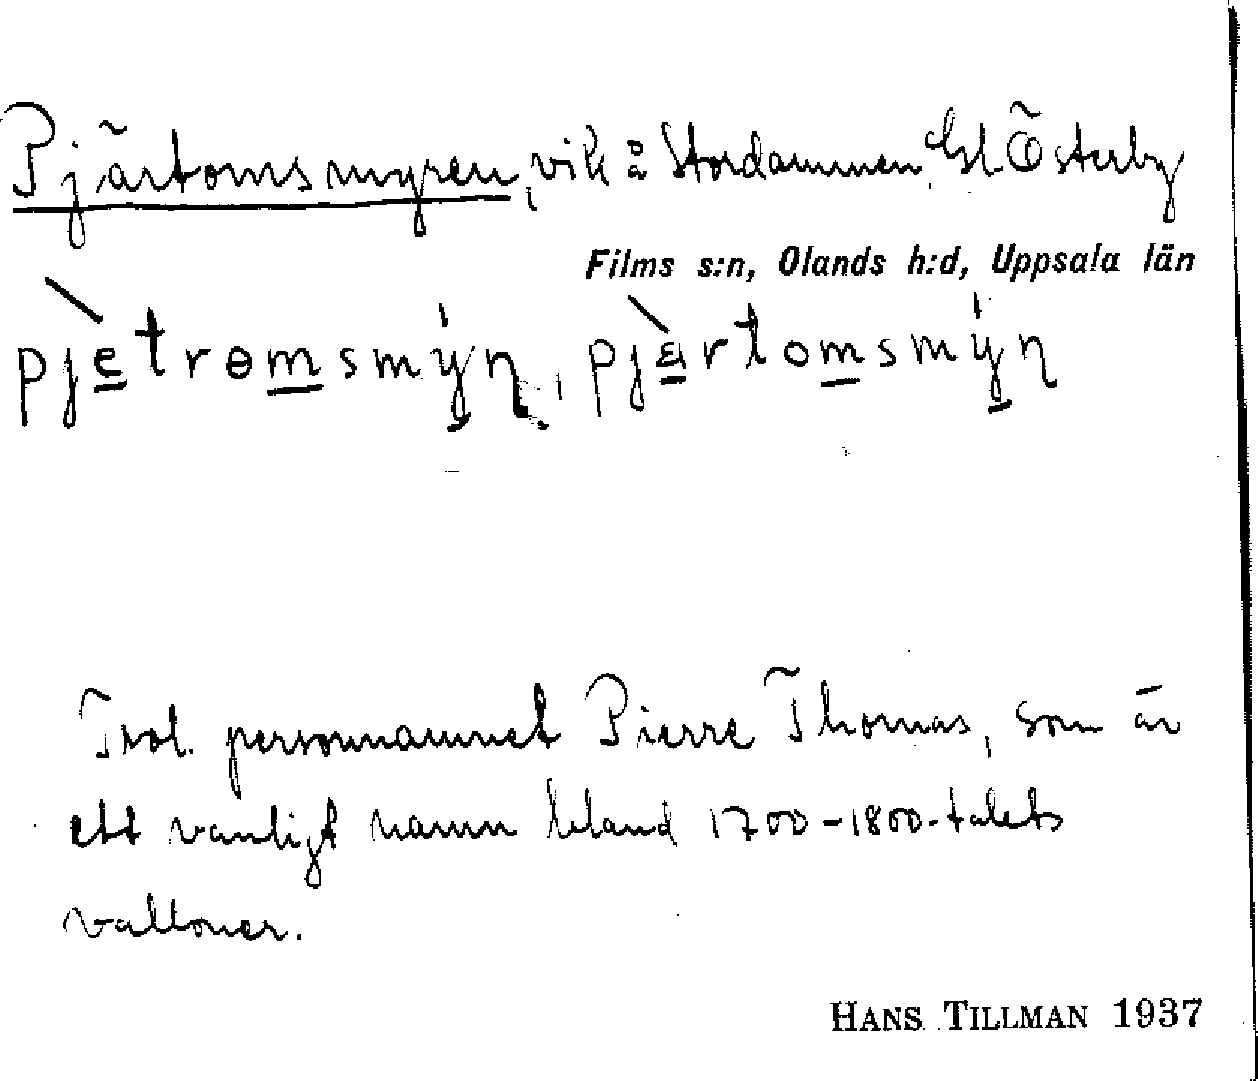 Pjärtomsmyren, vik å Stordammen, Gl. Österby
Films s:n, Olands h:d, Uppsala län
pjètrɵmsmýn, pjàrtomsmýn
Trol. personnamnet Pierre Thomas, som är
ett vanligt namn bland 1700-1800-talets
valloner.
HANS TILLMAN 1937